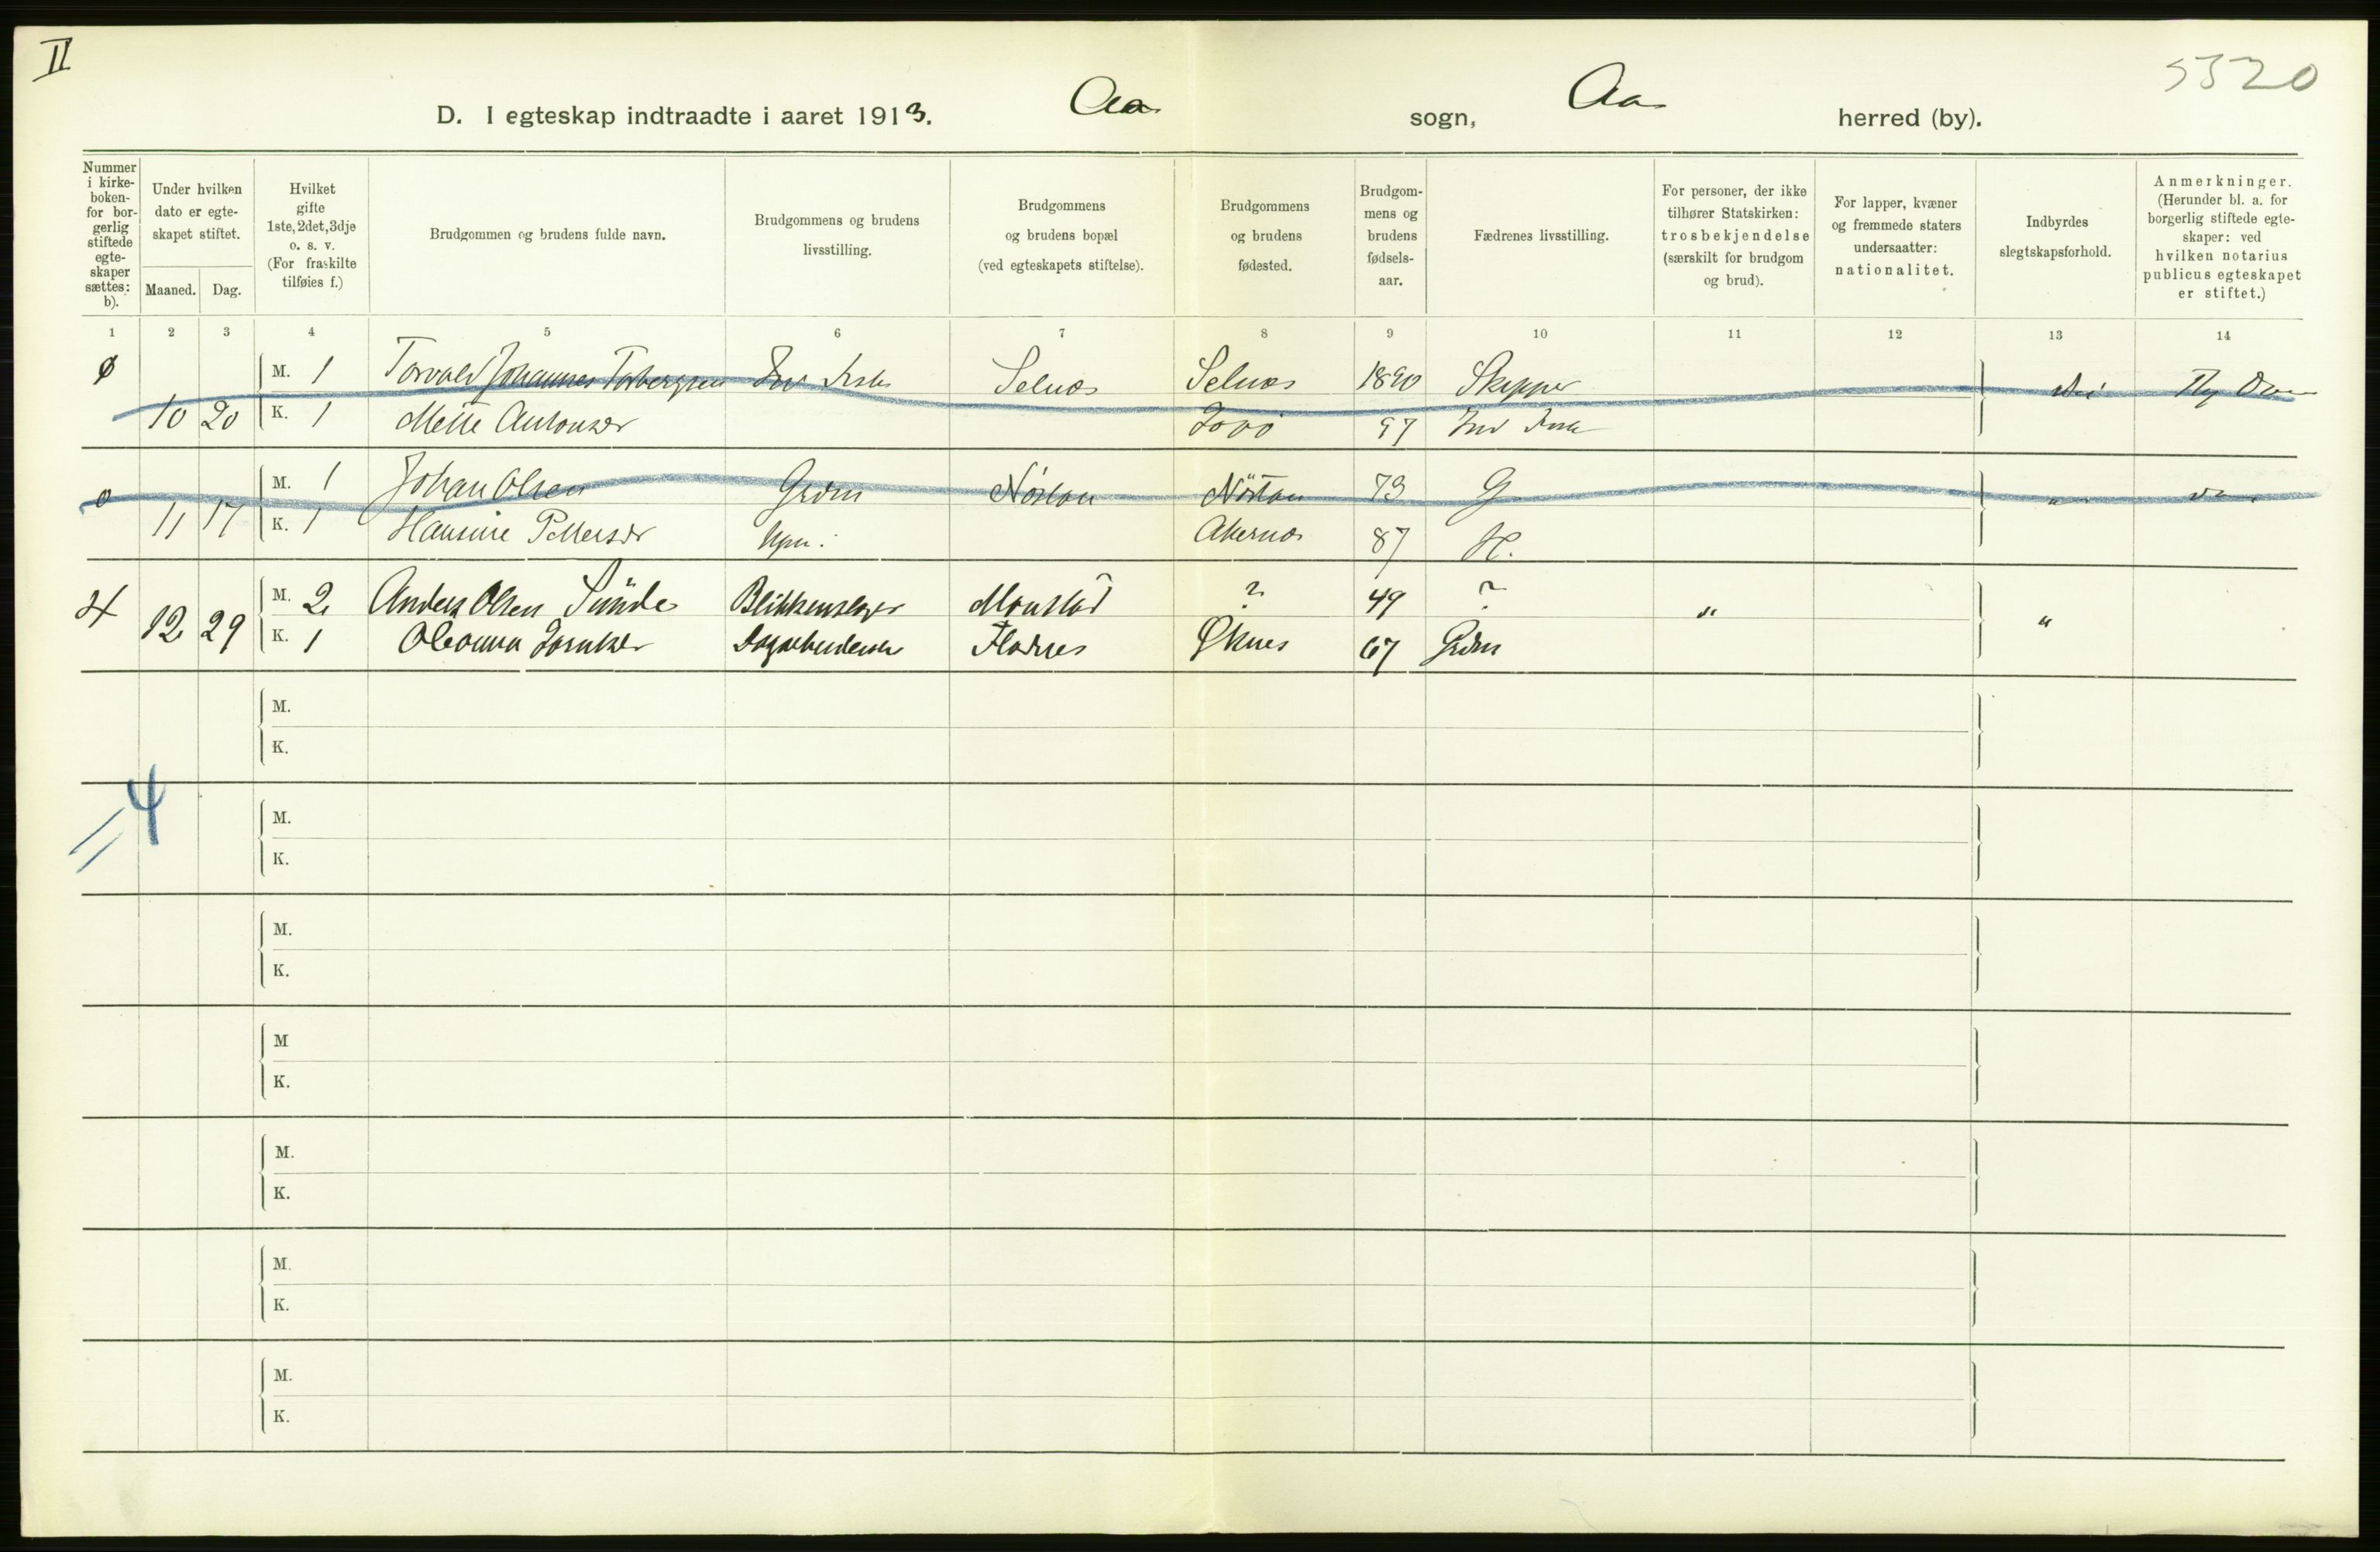 II
5520
D. I egteskap indtraadte i aaret 1913. Aa sogn, Aa herred (by).
Nummer i kirke- boken- for bor- gerlig stiftede egte- skaper sættes: b).
Under hvilken dato er egte- skapet stiftet.
Maaned. Dag.
Hvilket gifte 1ste, 2det, 3dje o. s. v. (For fraskilte tilføies f.)
Brudgommen og brudens fulde navn.
Brudgommens og brudens livsstilling.
Brudgommens og brudens bopæl (ved egteskapets stiftelse).
Brudgommens og brudens fødested.
Brudgom- mens og brudens fødsels- aar.
Fædrenes livsstilling.
For personer, der ikke tilhører Statskirken: trosbekjendelse (særskilt for brudgom og brud).
For lapper, kvæner og fremmede staters undersaatter: nationalitet.
Indbyrdes slegtskapsforhold.
Anmerkninger. (Herunder bl. a. for borgerlig stiftede egte- skaper: ved hvilken notarius publicus egteskapet er stiftet.)
1 2 3 4 5 6 7 8 9 10 11 12 13 14
M. 1 Torvald Johannes Torbergsen Selnæs Selnæs 1890 Skipper
10 20 K. 1 Mette Antonsen 97
M. 1 Johan Olsen Grdm Nöstan Nöstan 73 G
11 17 K. 1 Hansine Pettersen Akernæs 87 H.
4 12 29 M. 2 Anders Olsen Sünde Blikkenslager Monstad ? 49 ? " "
K. 1 Oleanna Fladnes Øknes 67 Grdm
M.
K.
= 4
M.
K.
M.
K.
M
K.
M.
K.
M.
K.
M.
K.